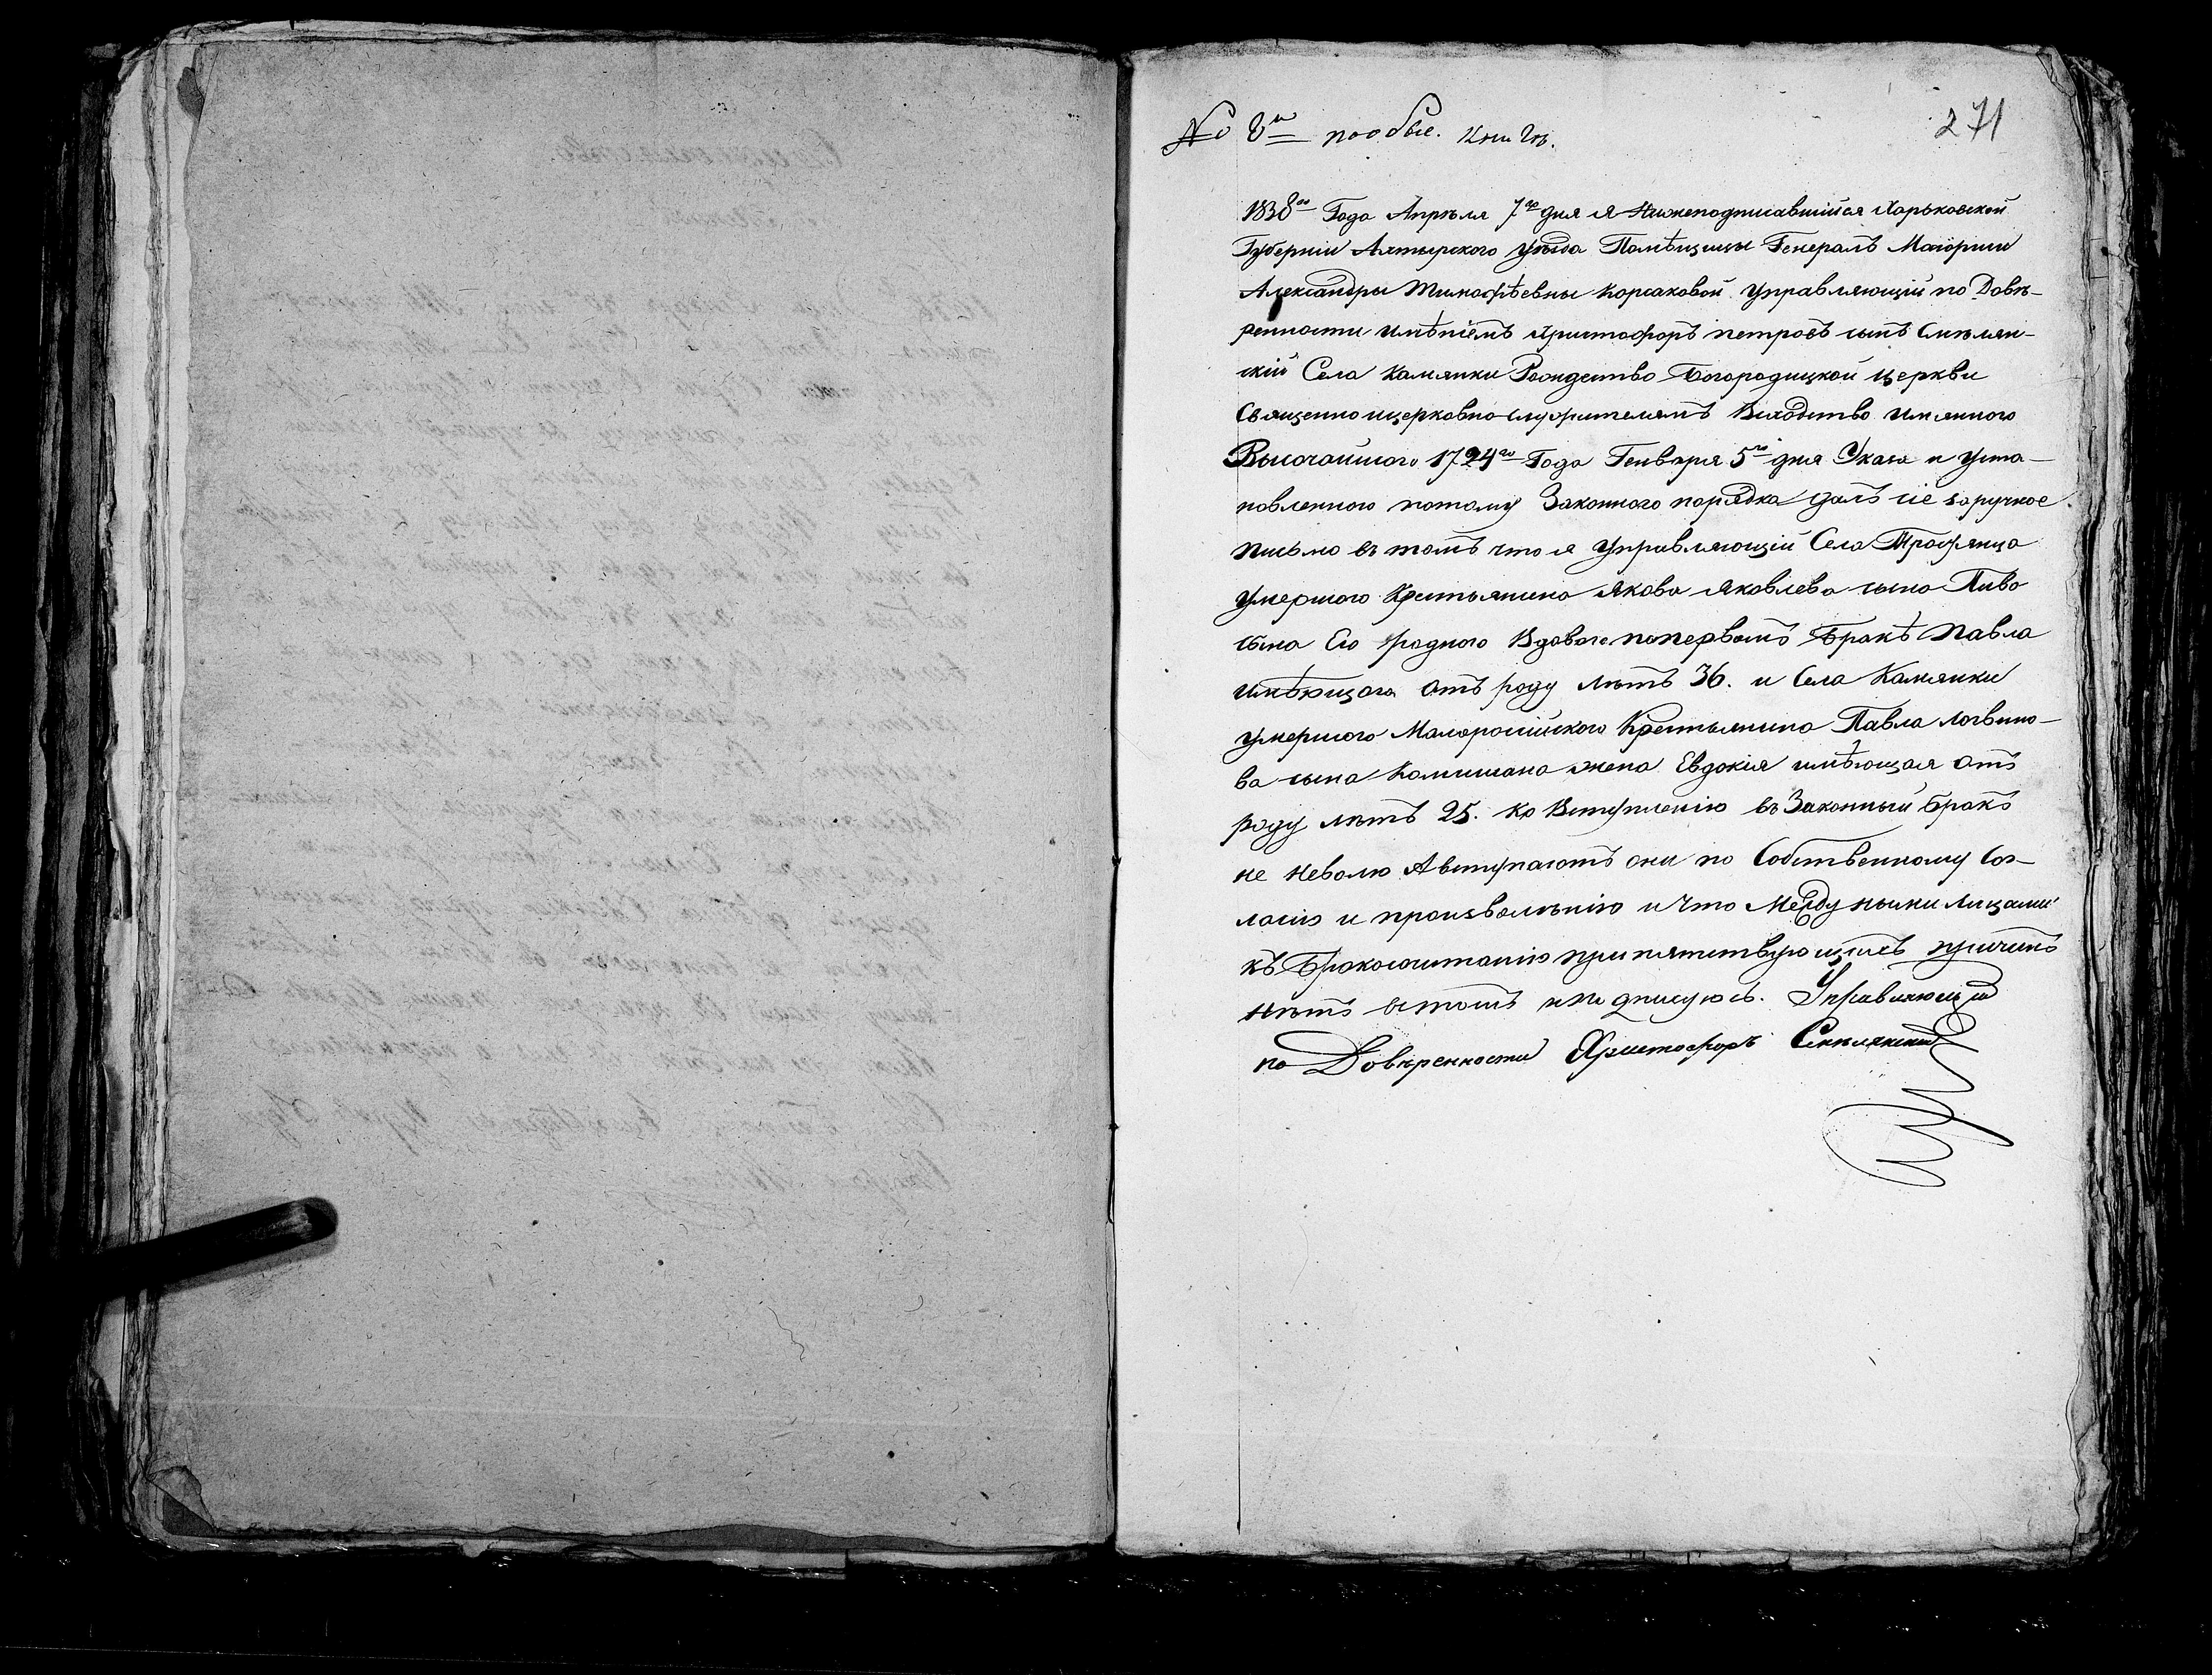 № 8й пообыс. книгѣ.
271
1838го Года Апрѣля 7го дня я Нижеподписавшійся Харьковской
Губерніи Ахтырского уѣзда Помѣщицы Генералъ Маіорши
Александры Тимофѣевны Корсаковой Управляющій по Довѣ-
ренности имѣніемъ Христофоръ петровъ сынъ Смѣлян-
скій Села Камянки Рождество Богородицкой церкви
Священноицерковно-служителямъ Вслѣдство имянного
Высочайшого 1724го Года Генваря 5го дня Указа и уста-
новленного потому Законного порядка далъ сіе заручное
письмо въ томъ что я Управляющій Села Трофянца
умершого Крестьянина Якова Яковлева сына Пиво
сына Его родного Вдового поперьвомъ Бракѣ Павла
имѣющого отъ роду лѣтъ 36. и Села Камянки
умершого Малоросійского Крестьянина Павла Логвино-
ва сына Камишана жена Евдокія имѣющая отъ
роду лѣтъ 25. ко Вступленію въ Законный бракъ
не неволю Авступаютъ они по Собственному Сог-
ласію и произволѣнію и что Между ными лицами
къ Бракосочитанію припятствующихъ причинъ
нѣтъ втомъ и подписуюсь. Управляющій
по Довѣренности Христофоръ Смѣлянский